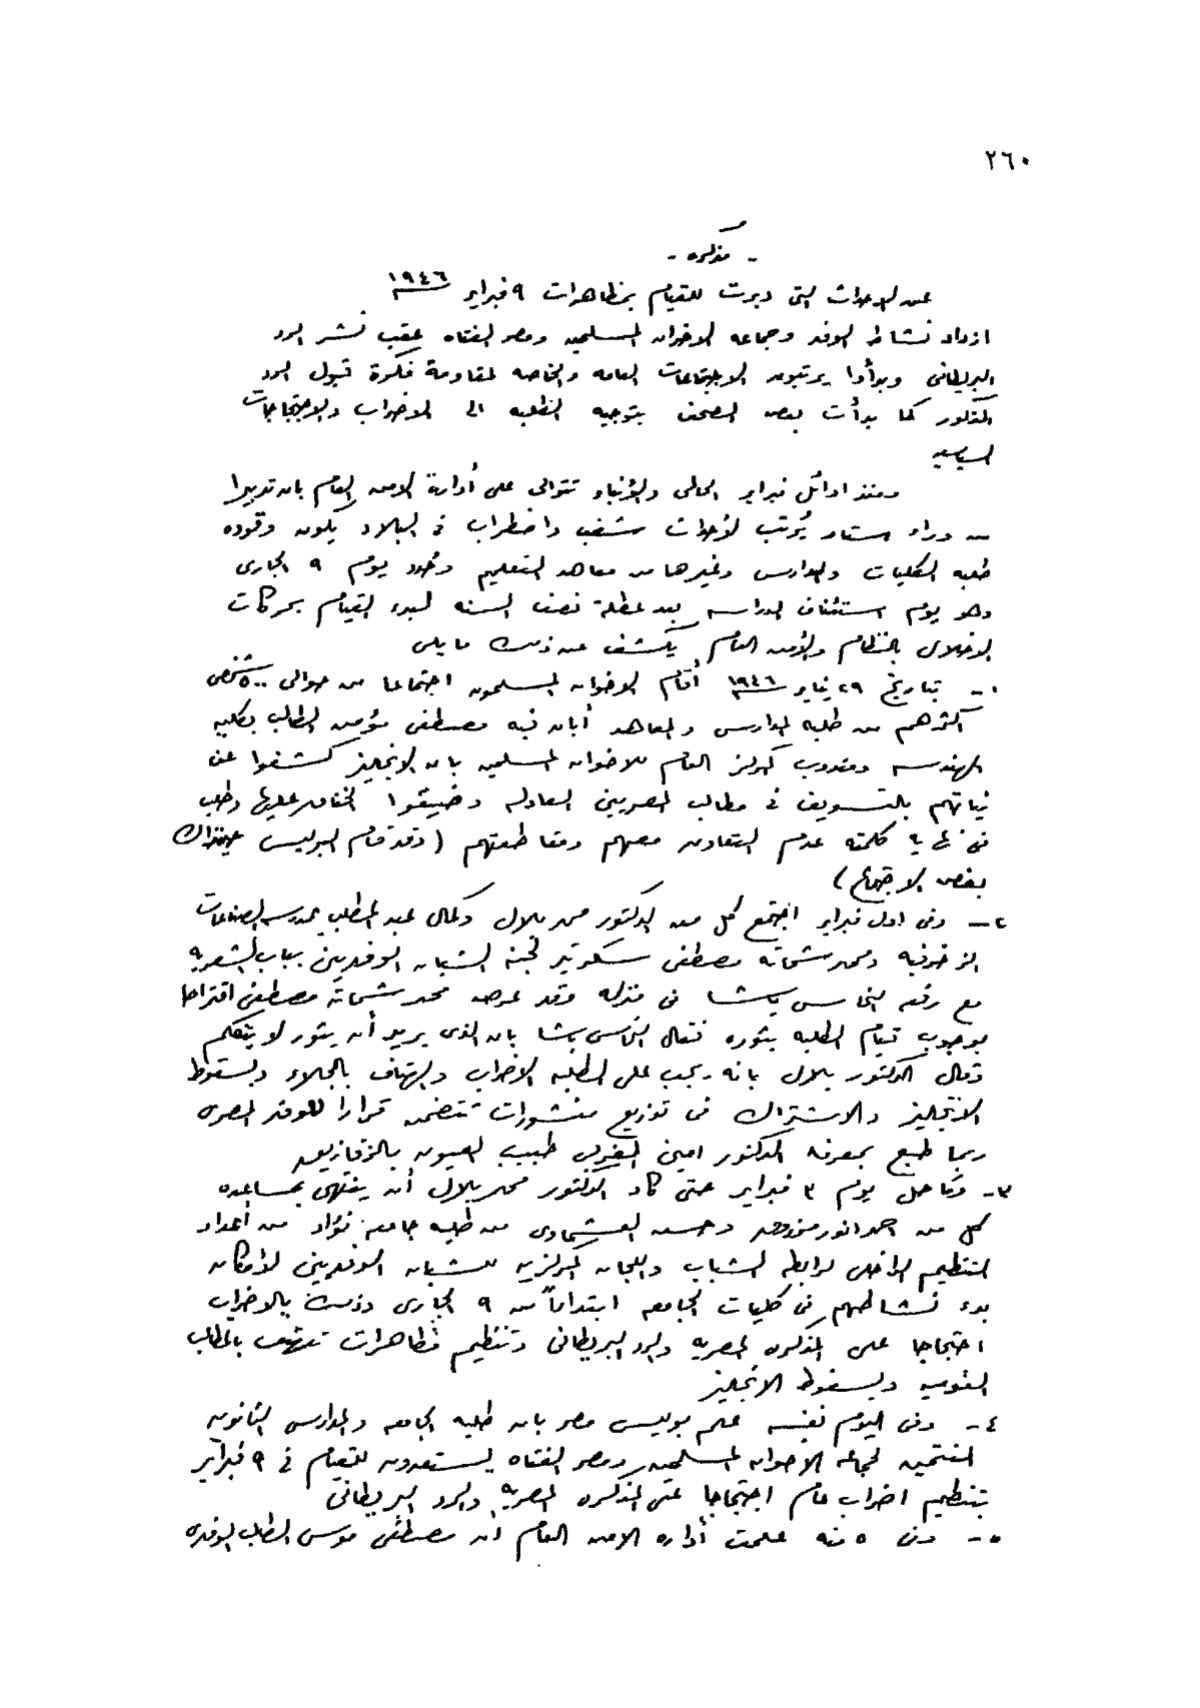 ٢٦٠
- مذكره -
عن الاحداث التى دبرت للقيام بمظاهرات ٩ فبراير ١٩٤٦
ازداد نشاط الوفد وجماعه الاخوان المسلمين ومصر الفتاه عقب نشر الرد
البريطانى وبدأوا يرتبون الاجتماعات العامه والخاصه لمقاومة فكرة قبول الرد
المذكور كما بدأت بعض الصحف بتوجيه الطلبه الى الاضراب والاحتجاجات
السياسيه
ومنذ اوائل فبراير الحالى والأنباء تتوالى على أدارة الامن العام بان تدبيرا
من وراء ستار يُرتب لأحداث شغب واضطراب فى البلاد يكون وقوده
طلبه الكليات والمدارس وغيرها من معاهد التعليم وحُدد يوم ٩ الجارى
وهو يوم استئناف الدراسه بعد عطلة نصف السنه لبدء القيام بحركات
الاخلال بالنظام والأمن العام يكشف عن ذلك ما يلى
١ - بتاريخ ٢٩ يناير ١٩٤٦ أقام الاخوان المسلمون اجتماعا من حوالى ٥٠٠ شخص
اكثرهم من طلبه المدارس والمعاهد أبان فيه مصطفى مؤمن الطالب بكليه
الهندسه ومندوب المركز العام للاخوان المسلمين بان الانجليز كشفوا عن
نياتهم بالتسويف فى مطالب المصريين العادله وضيقوا الخناق عليها وطلب
فى نهاية كلمته عدم التعاون معهم ومقاطعتهم (وقد قام البوليس حينذاك
بفض الاجتماع)
٢ - وفى اول فبراير اجتمع كل من الدكتور محمد بلال وكمال عبد المطلب بمدرسه الصناعات
الزخرفيه ومحمد شحاته مصطفى سكرتير لجنة الشبان الوفديين بباب الشعريه
مع رفعه النحاس باشا فى منزله وقد عرض محمد شحاتة مصطفى اقتراحا
بوجوب قيام الطلبه بثوره فقال النحاس باشا بان الذى يريد أن يثور لا يتكلم
وقال الدكتور بلال بانه يجب على الطلبه الاضراب والهتاف بالجلاء وبسقوط
الانجليز والاشتراك فى توزيع منشورات تتضمن قرارا للوفد المصرى
ربما طبع بمعرفه الدكتور امين طبيب العيون بالزقازيق
٣ - وما حل يوم ٣ فبراير حتى كاد الدكتور محمد بلال أن ينتهى بمساعده
كل من احمد انور وحسن العشماوى من طلبه جامعه فؤاد من أعداد
التنظيم الداخلى لرابطه الشباب واللجان المركزيه للشبان الوفديين لأمكان
بدء نشاطهم فى كليات الجامعه ابتداءً من ٩ الجارى وذلك بالاضراب
احتجاجا على المذكره المصريه والرد البريطانى وتنظيم مظاهرات تهتف بالمطالب
القوميه وبسقوط الانجليز
٤ - وفى اليوم نفسه علم بوليس مصر بان طلبه الجامعه والمدارس الثانويه
المنتمين لجماعه الاخوان المسلمين ومصر الفتاه يستعدون للقيام فى ٩ فبراير
بتنظيم اضراب عام احتجاجا على المذكره المصريه والرد البريطانى
٥ - وفى ٥ منه علمت أداره الامن العام ان مصطفى موسى الطالب الوفدى